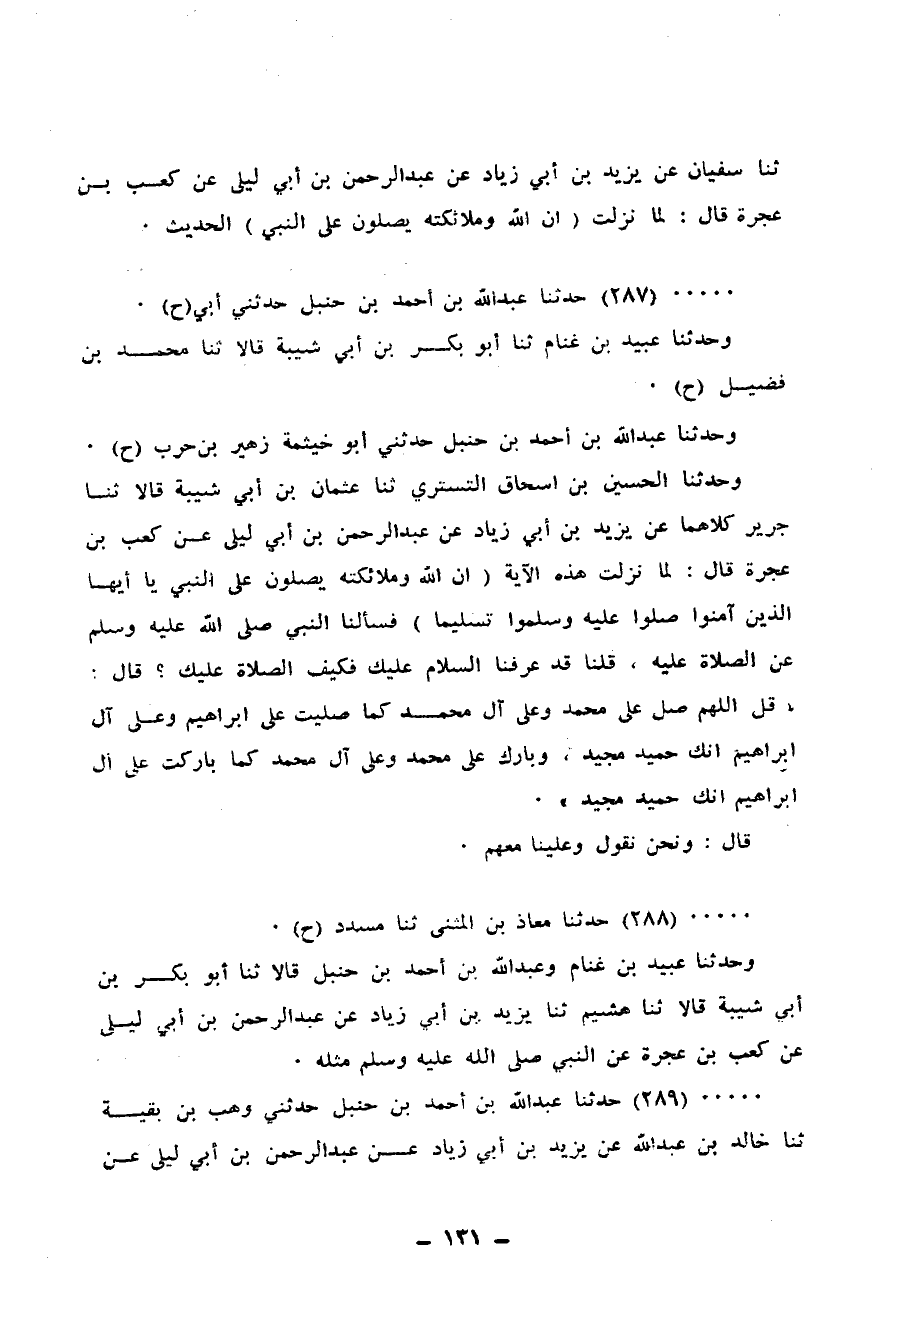 ثنا سفيان عن يزيد بن أبي زياد عن عبدالرحمن بن أبي ليلى عن كعب بن
عجرة قال : لما نزلت ( ان الله وملائكته يصلون على النبي ) الحديث ٠
٠٠٠٠٠ (٢٨٧) حدثنا عبدالله بن أحمد بن حنبل حدثني أبي(ح) ٠
وحدثنا عبيد بن غنام ثنا أبو بكر بن أبي شيبة قالا ثنا محمد بن
فضيل (ح) ٠
وحدثنا عبدالله بن أحمد بن حنبل حدثني أبو خيثمة زهير بن حرب (ح) ٠
وحدثنا الحسين بن اسحاق التستري ثنا عثمان بن أبي شيبة قالا ثنا
جرير كلاهما عن يزيد بن أبي زياد عن عبدالرحمن بن أبي ليلى عن كعب بن
عجرة قال : لما نزلت هذه الآية ( ان الله وملائكته يصلون على النبي يا أيها
الذين آمنوا صلوا عليه وسلموا تسليما ) فسألنا النبي صلى الله عليه وسلم
عن الصلاة عليه ، قلنا قد عرفنا السلام عليك فكيف الصلاة عليك ؟ قال :
، قل اللهم صل على محمد وعلى آل محمد كما صليت على ابراهيم وعلى آل
ابراهيم انك حميد مجيد ، وبارك على محمد وعلى آل محمد كما باركت على آل
ابراهيم انك حميد مجيد ، ٠
قال : ونحن نقول وعلينا معهم ٠
٠٠٠٠٠ (٢٨٨) حدثنا معاذ بن المثنى ثنا مسدد (ح) ٠
وحدثنا عبيد بن غنام وعبدالله بن أحمد بن حنبل قالا ثنا أبو بكر بن
أبي شيبة قالا ثنا هشيم ثنا يزيد بن أبي زياد عن عبدالرحمن بن أبي ليلى
عن كعب بن عجرة عن النبي صلى الله عليه وسلم مثله ٠
٠٠٠٠٠ (٢٨٩) حدثنا عبدالله بن أحمد بن حنبل حدثني وهب بن بقية
ثنا خالد بن عبدالله عن يزيد بن أبي زياد عن عبدالرحمن بن أبي ليلى عن
– ١٣١ –